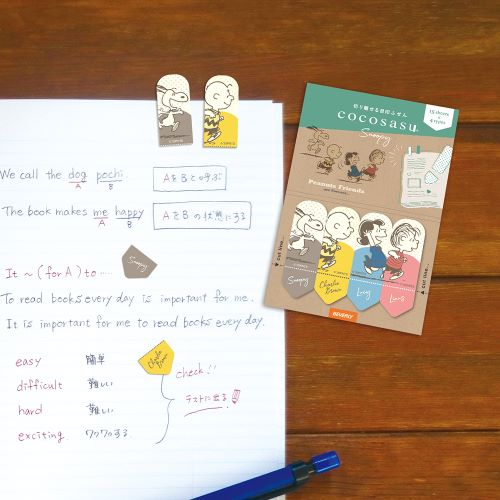 We call the dog pochi.
A B
AをBと呼ぶ
The book makes me happy
A B
AをBの状態にする
It ~ (for A) to……
Snoopy
To read books every day is important for me.
It is important for me to read books every day.
easy 簡単
difficult 難しい
hard 難しい
exciting ワクワクする
Charlie Brown
check!!
テストに出る
切り離せる目印ふせん
cocosasu
Snoopy
15 sheets
×
4 types
Peanuts Friends
CUT LINE
CUT LINE
Snoopy
Charlie Brown
Lucy
Linus
BEVERLY